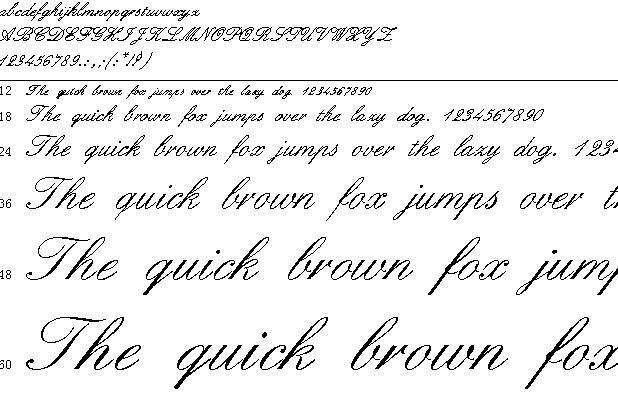 abcdefghijklmnopqrstuvwxyz
ABCDEFGHIJKLMNOPQRSTUVWXYZ
123456789.:,;(:*!?)
12 The quick brown fox jumps over the lazy dog. 1234567890
18 The quick brown fox jumps over the lazy dog. 1234567890
24 The quick brown fox jumps over the lazy dog. 1234
36 The quick brown fox jumps over th
48 The quick brown fox jump
60 The quick brown fox